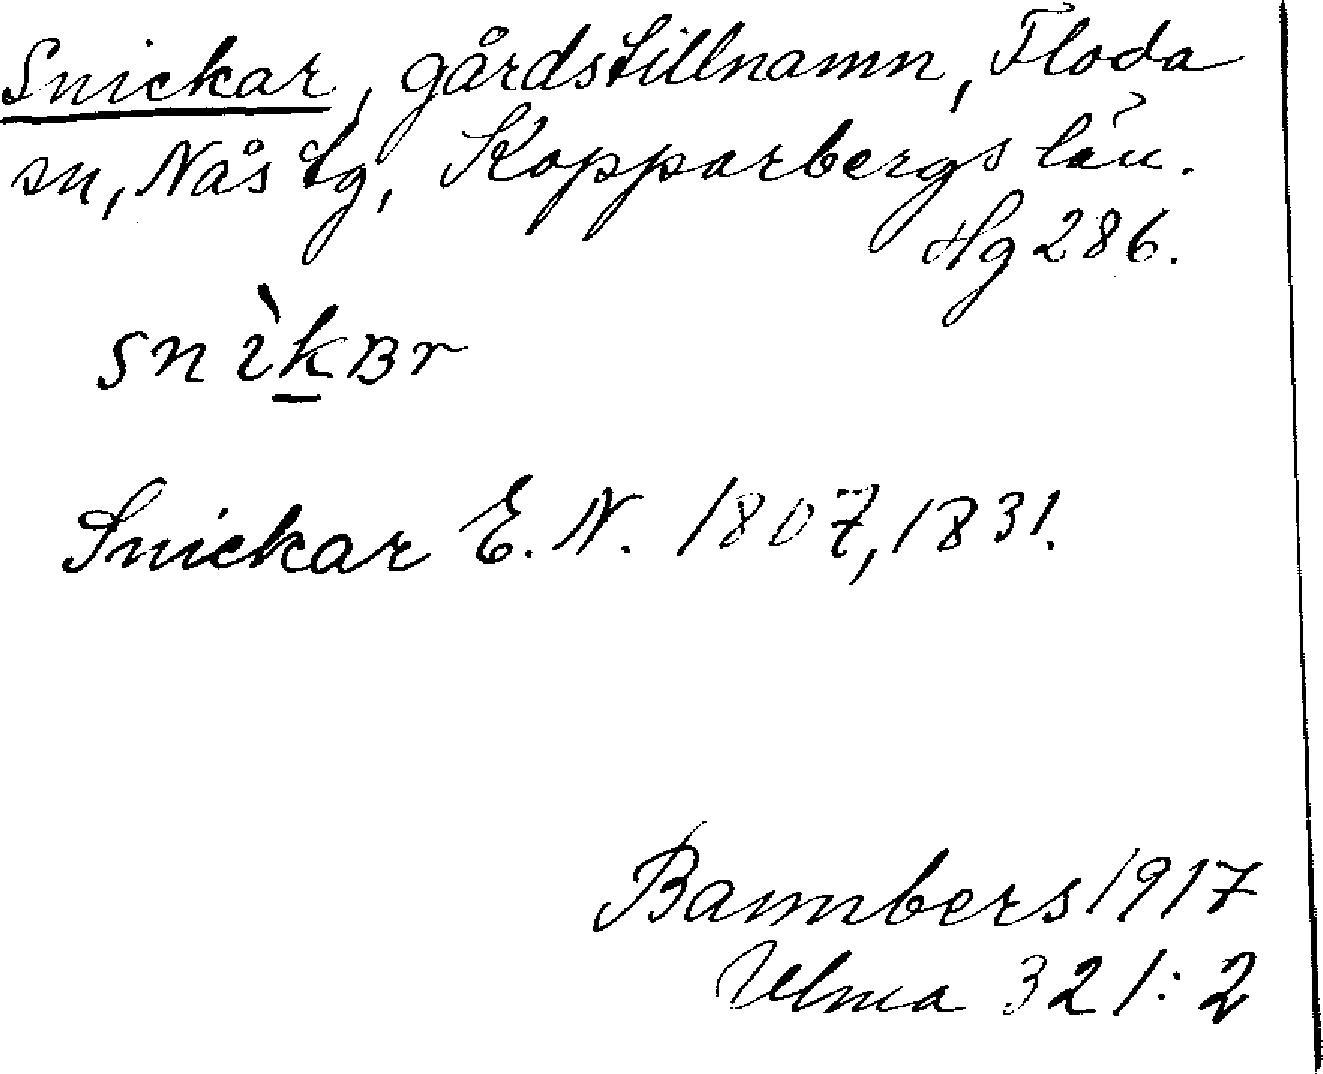 Snickar, gårdstillnamn, Floda
sn, Nås tg, Kopparbergs län.
Hg 286.
snìk̲ʙr
Snickar E. N. 1807, 1831.
Bannbers 1917
Ulma 321:2